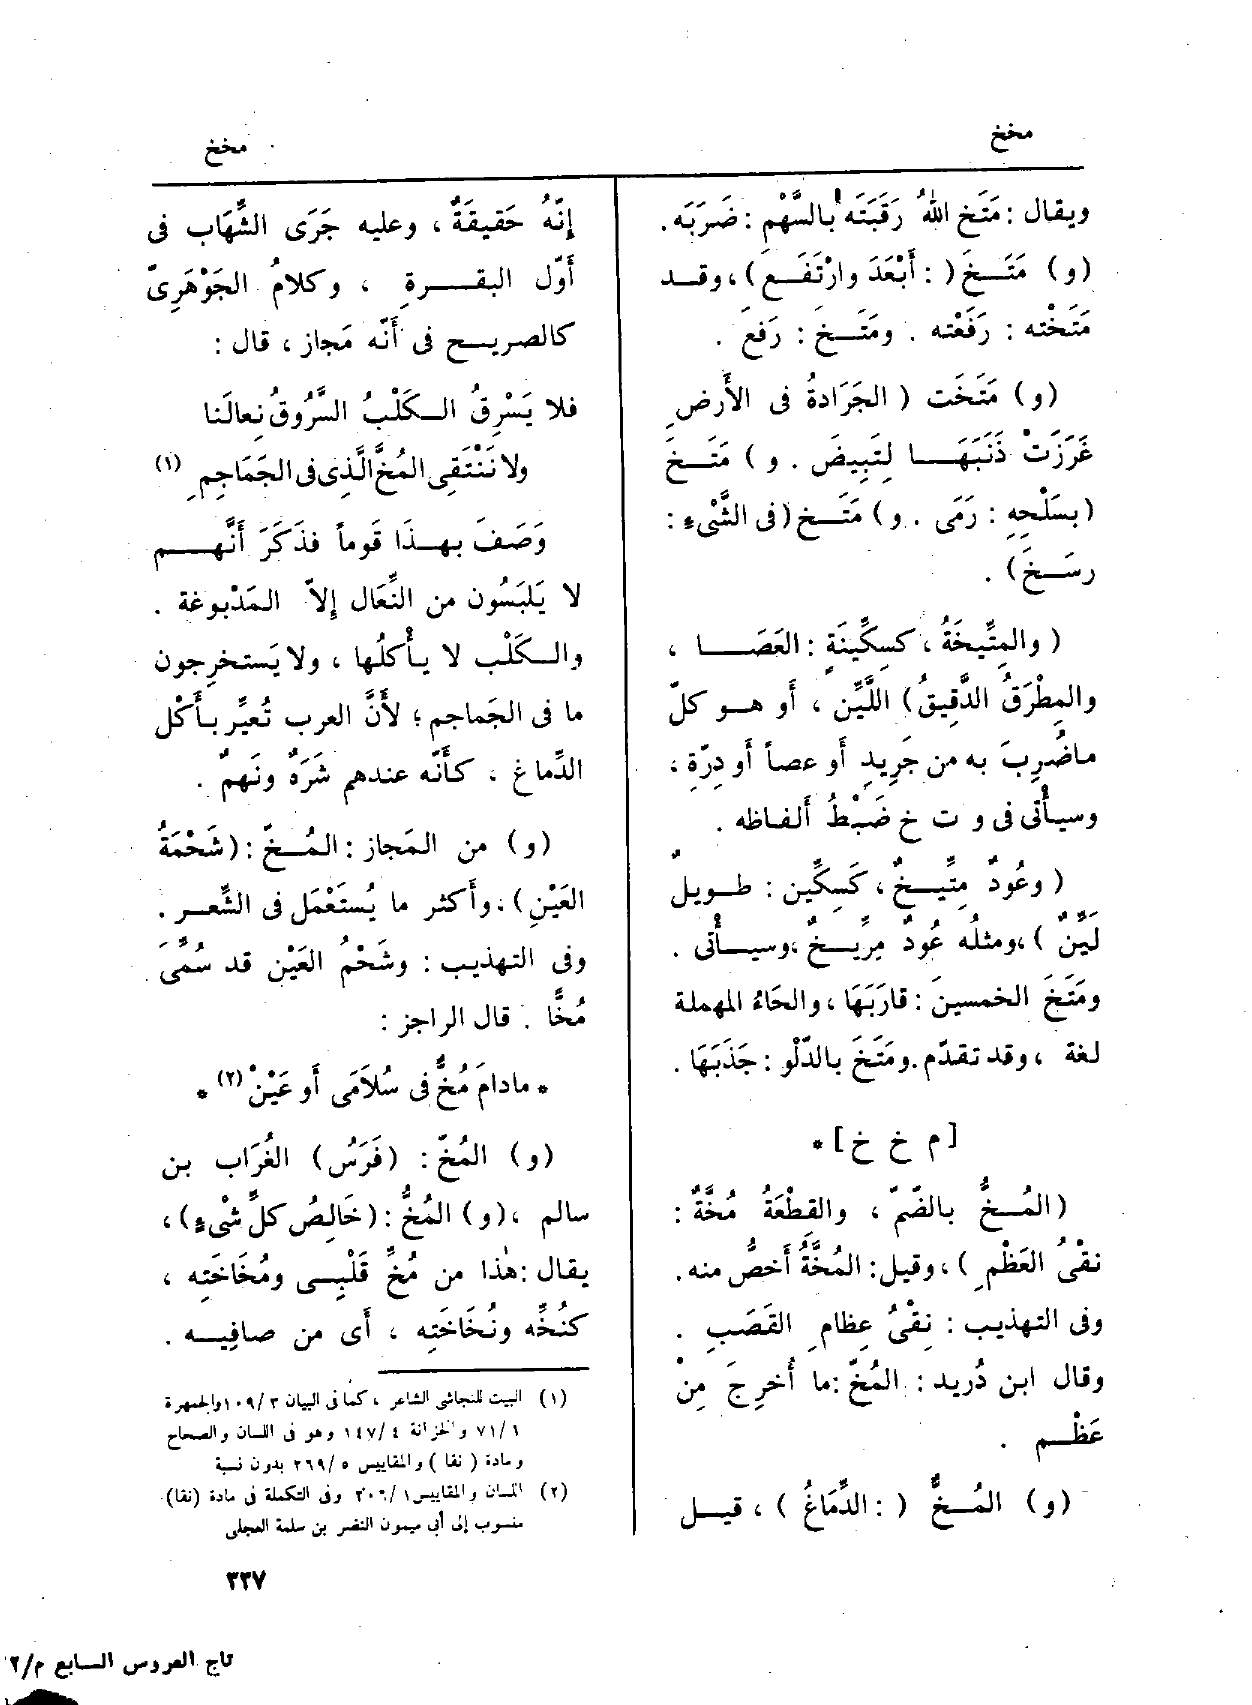 مخخ
مخخ
ويقال : مَتَخ اللهُ رَقَبَتَه بالسَّهْم : ضَرَبَه .
(و) مَتَـخَ ( : أَبْعَدَ وارْتَفَـعَ ) ، وقـد
مَتَخْته : رَفَعْته . ومَتَـخَ : رَفعَ .
(و) مَتَخَت ( الجَرَادةُ فى الأَرضِ
غَرَزَتْ ذَنَبَهَـا لِتَبِيضَ . و ) مَتَـخَ
(بسَلْحِهِ : رَمَى . و) مَتَـخ (فى الشَّىْءِ :
رسَـخَ) .
( والمِتِّيخَةُ ، كسِكِّينَةٍ : العَصَـا ،
والمِطْرَقُ الدَّقِيقُ) اللَّيِّن ، أَو هـو كلّ
ماضُرِبَ به من جَرِيدٍ أَو عصاً أَو دِرّةٍ ،
وسيأْتى فى و ت خ ضَبْطُ أَلفـاظه .
( وعُودٌ مِتِّيـخٌ ، كَسِكِّين : طـويلٌ
لَيِّنٌ ) ، ومثلُه عُودٌ مِرِّيـخٌ ، وسيـأْتى .
ومَتَخَ الخمسينَ : قارَبَهَا ، والحَاءُ المهملة
لغة ، وقد تقدّم . ومَتَخَ بالدّلْو : جَذَبَهَا .
[ م خ خ ] *
( المُـخُّ بالضّمّ ، والقِطْعَةُ مُخَّةٌ :
نقْىُ العَظْمِ ) ، وقيل : المُخَّةُ أَخصُّ منه .
وفى التهذيب : نِقْىُ عِظامِ القَصَبِ .
وقال ابن دُريد : المُخّ : ما أُخرِجَ مِنْ
عَظْـم .
(و) المُـخُّ ( : الدِّمَاغُ ) ، قيـل
إِنّهُ حَقيقَةٌ ، وعليه جَرَى الشِّهَاب فى
أَوّل البقـرةِ ، وكلامُ الجَوْهَرِىّ
كالصريـح فى أَنّه مَجاز ، قال :
فلا يَسْرِقُ الـكَلْبُ السَّرُوقُ نِعالَنا
ولا نَنْتَقِى المُخَّ الَّذِى فى الجَمَاجِمِ (١)
وَصَفَ بهـذَا قَوماً فذَكَرَ أَنَّهـم
لا يَلبَسُون من النِّعَال إِلاّ المَدْبوغة .
والـكَلْب لا يـأْكلُها ، ولا يَستخرِجون
ما فى الجَماجم ؛ لأَنَّ العرب تُعيِّر بـأَكْل
الدِّماغ ، كـأَنّه عندهم شَرَهٌ ونَهمٌ .
(و) من المَجاز : المُـخّ : (شَحْمَةُ
العَيْنِ ) ، وأَكثر ما يُستَعْمَل فى الشِّعـر .
وفى التهذيب : وشَحْمُ العَيْن قد سُمِّىَ
مُخًّا . قال الراجز :
* مادامَ مُخٌّ فى سُلاَمَى أَو عَيْنْ (٢) *
(و) المُخّ : (فَرَسُ) الغُرَاب بن
سالم ، (و) المُخُّ : (خَالِصُ كلِّ شىْءٍ) ،
يقال : هٰذا من مُخِّ قَلْبِـى ومُخَاخَتِه ،
كنُخِّه ونُخَاخَتِه ، أَى من صافِيـه .
(١) البيت للنجاشى الشاعر ، كما فى البيان ٣ /١٠٩ والجمهرة
١ /٧١ والخزانة ٤ /١٤٧ وهو فى اللسان والصحاح
ومادة ( نقا ) والمقاييس ٥ /٢٦٩ بدون نسبة
(٢) اللسان والمقاييس ١ /٣٠٦ وفى التكملة فى مادة (نقا)
منسوب إلى أبى ميمون النضر بن سلمة العجلى
٣٣٧
تاج العروس السابع م/٢